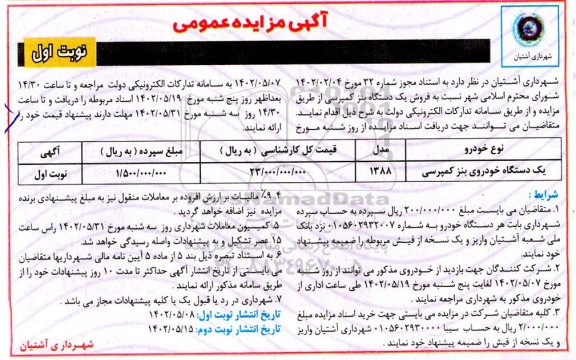 آگهی مزایده عمومی
نوبت اول
شهرداری آشتیان
شهرداری آشتیان در نظر دارد به استناد مجوز شماره ۳۲ مورخ ۱۴۰۲/۰۲/۰۴
شورای محترم اسلامی شهر نسبت به فروش یک دستگاه بنز کمپرسی از طریق
مزایده و از طریق سامانه تدارکات الکترونیکی دولت به شرح ذیل اقدام نماید.
متقاضیان می توانند جهت دریافت اسناد مزایده از روز شنبه مورخ
۱۴۰۲/۰۵/۰۷ به سامانه تدارکات الکترونیکی دولت مراجعه و تا ساعت ۱۴/۳۰
بعداظهر روز پنج شنبه مورخ ۱۴۰۲/۰۵/۱۹ اسناد مربوطه را دریافت و تا ساعت
۱۴/۳۰ روز سه شنبه مورخ ۱۴۰۲/۰۵/۳۱ مهلت دارند پیشنهاد قیمت خود را
ارائه نمایند.
نوع خودرو مدل قیمت کل کارشناسی (به ریال) مبلغ سپرده (به ریال) آگهی
یک دستگاه خودروی بنز کمپرسی ۱۳۸۸ ۲۳/۰۰۰/۰۰۰/۰۰۰ ۱/۵۰۰/۰۰۰/۰۰۰ نوبت اول
شرایط :
۱. متقاضیان می بایست مبلغ ۲۰۰/۰۰۰/۰۰۰ ریال سپرده به حساب سپرده
شهرداری بابت هر دستگاه خودرو به شماره ۰۱۰۵۶۰۲۹۳۲۰۰۷ نزد بانک
ملی شعبه آشتیان واریز و یک نسخه از فیش مربوطه را ضمیمه پیشنهاد
خود نمایند.
۲. شرکت کنندگان جهت بازدید از خودروی مذکور می توانند از روز شنبه
مورخ ۱۴۰۲/۰۵/۰۷ لغایت پنج شنبه مورخ ۱۴۰۲/۰۵/۱۹ طی ساعت اداری از
خودروی مذکور به شهرداری مراجعه نمایند.
۳. کلیه متقاضیان شرکت در مزایده می بایستی جهت خرید اسناد مزایده مبلغ
۲/۰۰۰/۰۰۰ ریال به حساب سیبا ۰۱۰۵۶۰۲۹۳۰۰۰۰ شهرداری آشتیان واریز
و یک نسخه از فیش را ضمیمه پیشنهاد خود نمایند.
۴. ۹٪ مالیات بر ارزش افزوده بر معاملات منقول نیز به مبلغ پیشنهادی برنده
مزایده نیز اضافه خواهد گردید.
۵. کمیسیون معاملات شهرداری روز سه شنبه مورخ ۱۴۰۲/۰۵/۳۱ راس ساعت
۱۵ عصر تشکیل و به پیشنهادات واصله رسیدگی خواهد شد.
۶. به استناد تبصره ذیل بند ۵ از ماده ۵ آیین نامه مالی شهرداریها متقاضیان
می بایستی از تاریخ انتشار آگهی حداکثر تا مدت ۱۰ روز پیشنهادات خود را از
طریق سامانه مذکور ارائه نمایند.
۷. شهرداری در رد یا قبول یک یا کلیه پیشنهادات مجاز می باشد.
تاریخ انتشار نوبت اول: ۱۴۰۲/۰۵/۰۸
تاریخ انتشار نوبت دوم: ۱۴۰۲/۰۵/۱۵
شهرداری آشتیان